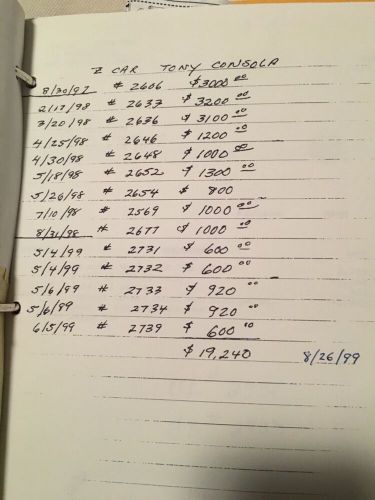 Z CAR TONY CONSOLA
8/30/97 # 2606 $3000 00
2/17/98 # 2633 $3200 00
3/20/98 # 2636 $3100 00
4/25/98 # 2646 $1200 00
4/30/98 # 2648 $1000 00
5/18/98 # 2652 $1300 00
5/26/98 # 2654 $ 800
7/10/98 # 2569 $1000 00
8/31/98 # 2677 $1000 00
5/4/99 # 2731 $ 600 00
5/4/99 # 2732 $ 600 00
5/6/99 # 2733 $ 920 00
5/6/99 # 2734 $ 920 00
6/5/99 # 2739 $ 600 00
$19,240 8/26/99